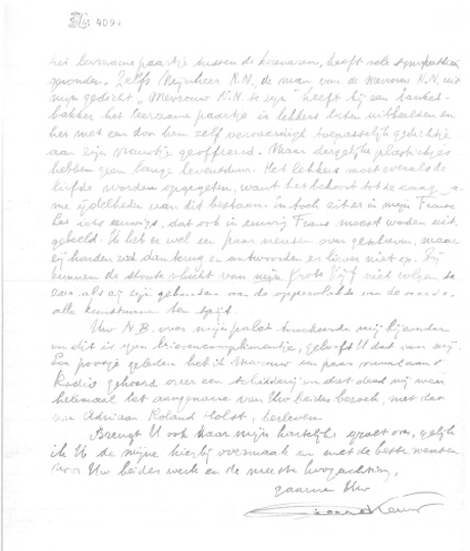 409
het leerzame paartje tussen de , heeft vele sympathieën
gevonden. Zelfs Mijnheer N.N., de man van de Mevrouw N.N. uit
mijn gedicht "Mevrouw N.N. te zijn" heeft bij een banket-
bakker het leerzame paartje in lekkers laten uitbeelden en
het met een door hem zelf vervaardigd toepasselijk gedichtje
aan zijn vrouwtje geofferd. Maar dergelijke plastiekjes
hebben geen lange levensduur. Het lekkers moet evenals de
liefde worden opgegeten, want het behoort tot de
ijdelheden van dit bestaan. En toch zit er in mijn Frans
iets eeuwigs, dat ook in eeuwig Frans moest worden uit-
gebeeld. Ik heb er wel een paar mensen over geschreven, maar
zij en antwoorden er liever niet op. Zij
kunnen de stoute vlucht van mijn Grote Vijf niet volgen
als zij zijn gebonden aan de oppervlakte van de aarde,
alle kunstenaars ten spijt.
Uw N.B. over mijn palet mij bijzonder
en dit is geen , gelooft U dat van mij.
Een poosje geleden heb ik Mevrouw een paar voor
Radio gehoord over een schilderij en dat deed mij weer
helemaal het aangename van Uw beider bezoek, met dat
van Adriaan Roland Holst, herleven.
Brengt U ook Haar mijn hartelijke groet over, gelijk
ik U de mijne hierbij vermaak en met de beste wensen
voor Uw beider werk en de meeste hoogachting,
gaarne Uw